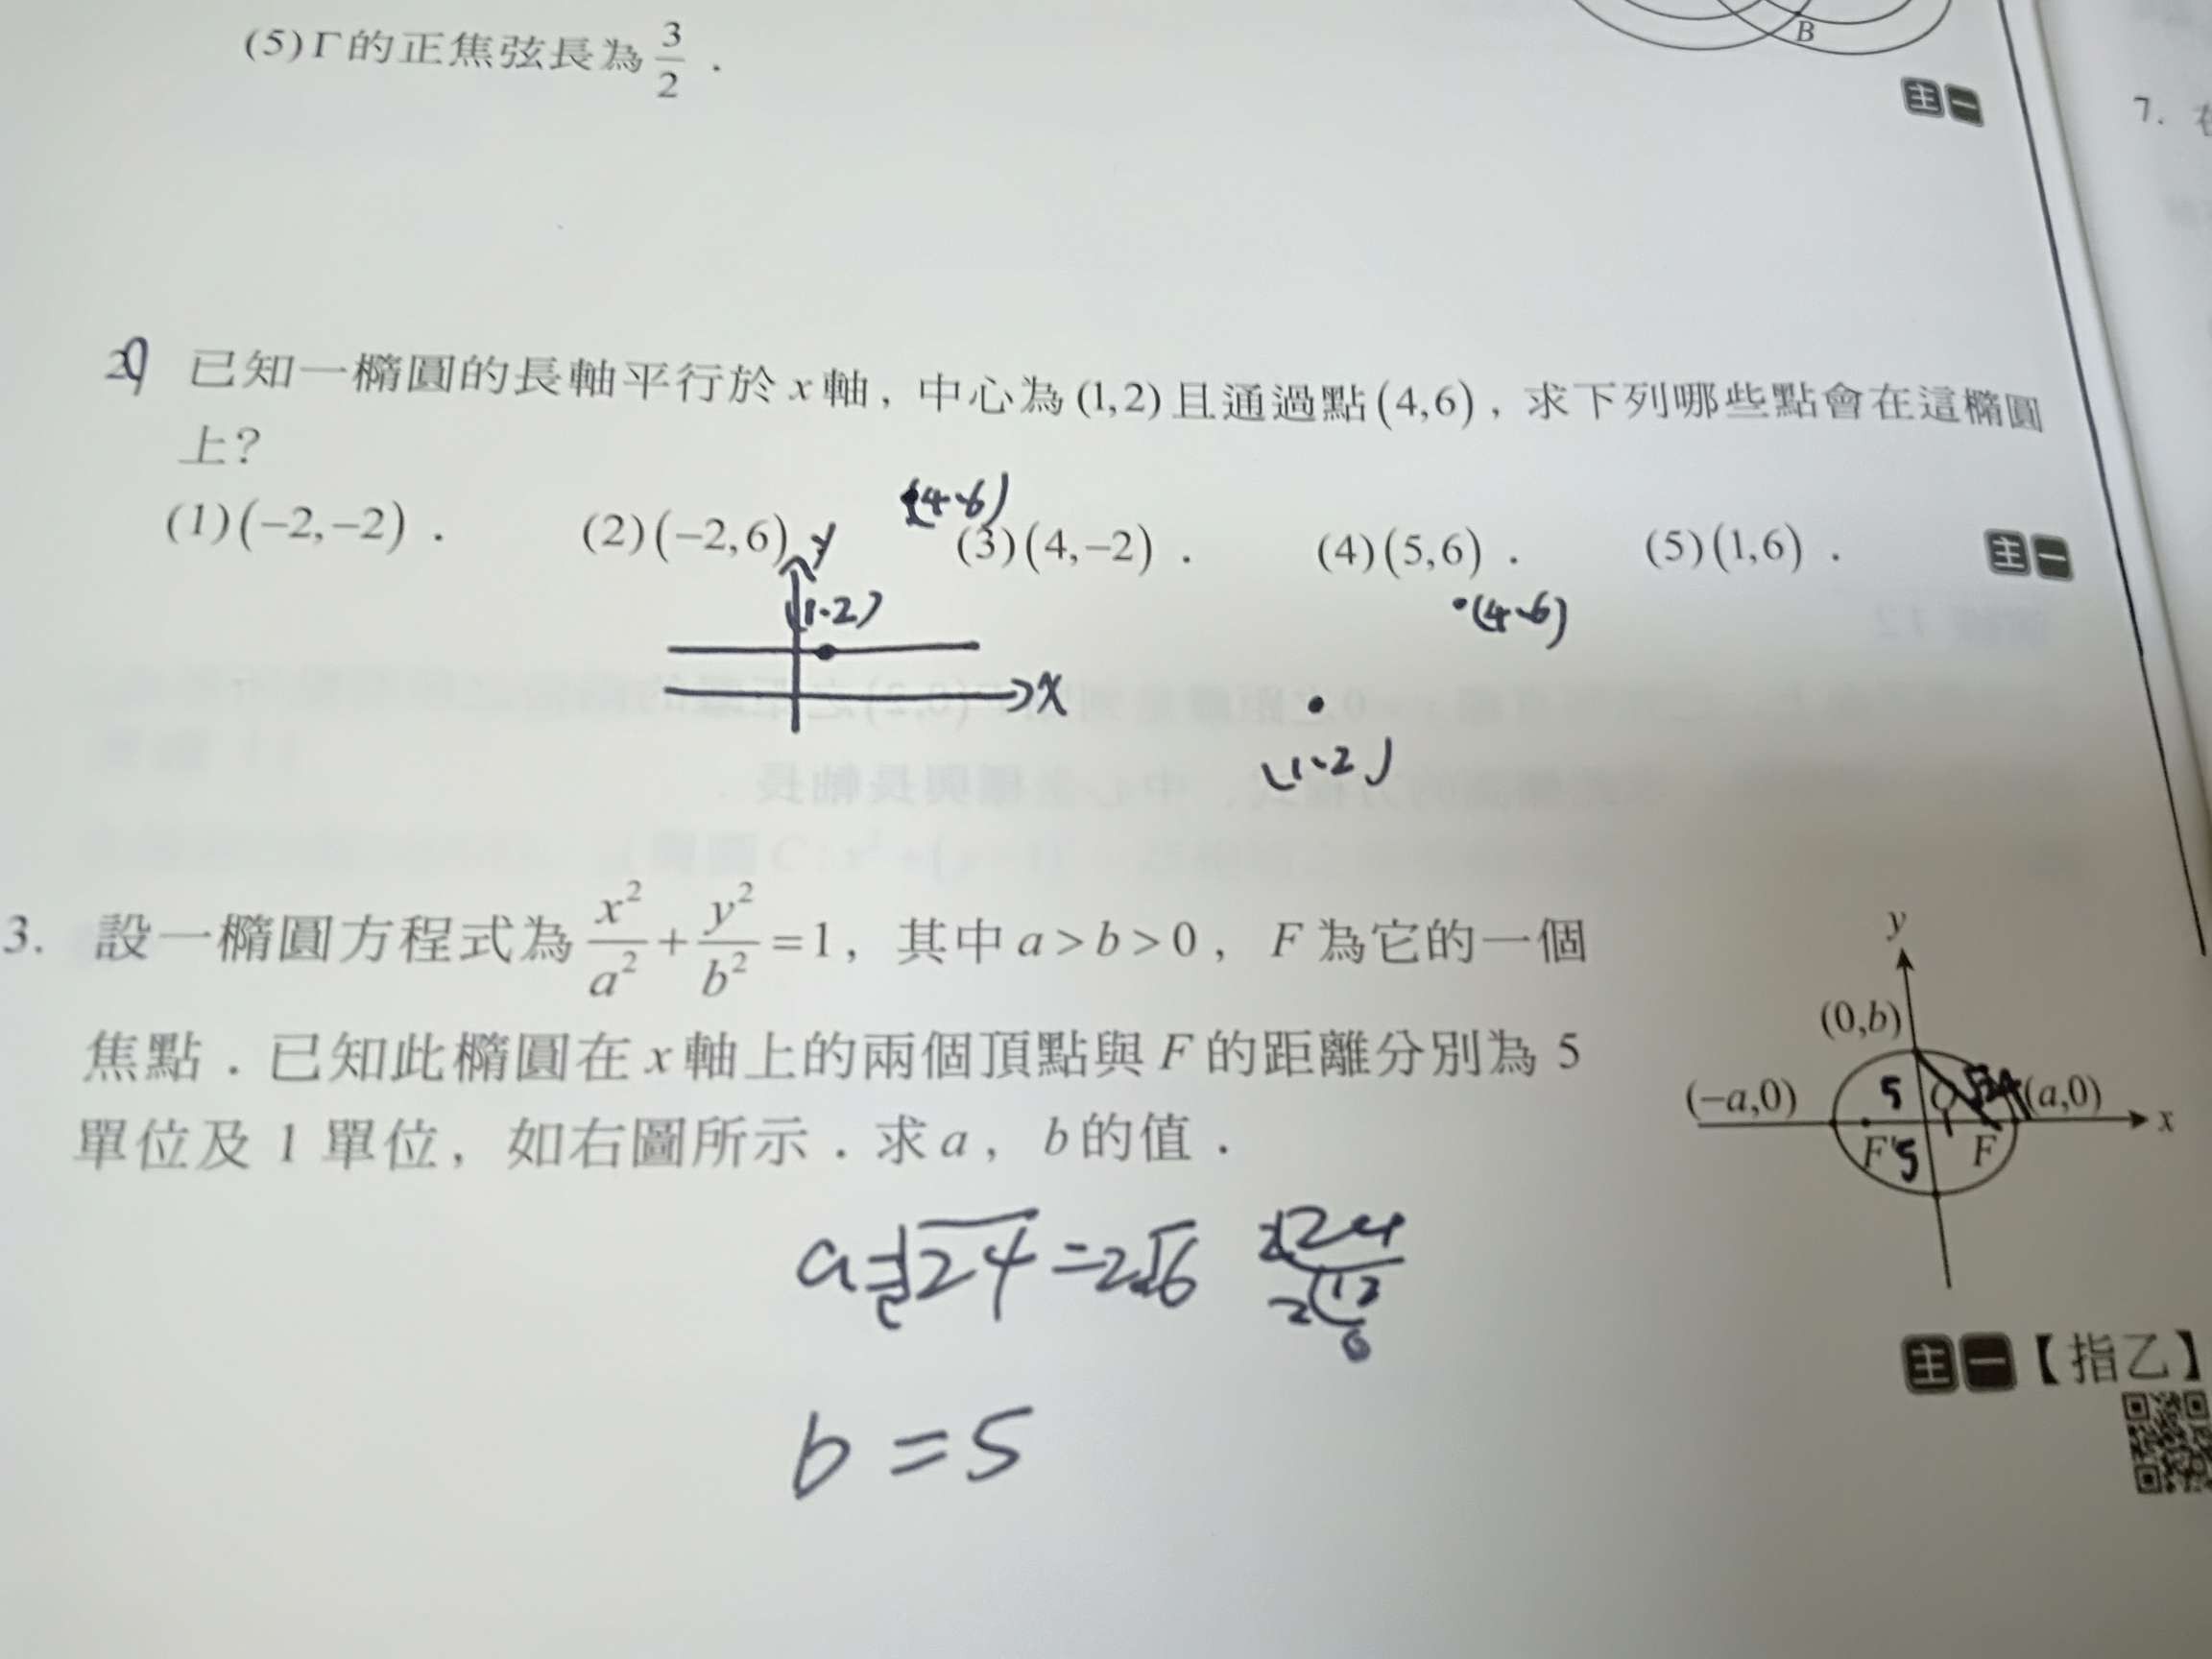 (5) Γ的正焦弦長為 3/2 .
B
主一
7.
2. 已知一橢圓的長軸平行於 x 軸, 中心為 (1,2) 且通過點 (4,6), 求下列哪些點會在這橢圓
上?
(4、6)
(1) (−2,−2) . (2) (−2,6) (3) (4,−2) . (4) (5,6) . (5) (1,6) . 主一
y
(1、2)
x
(4、6)
(1、2)
3. 設一橢圓方程式為 x²/a² + y²/b² = 1, 其中 a > b > 0, F 為它的一個
焦點 . 已知此橢圓在 x 軸上的兩個頂點與 F 的距離分別為 5
單位及 1 單位, 如右圖所示 . 求 a, b 的值 .
y
(0,b)
(−a,0) 5 (a,0)
x
F' 5 F
a=√24=2√6
2 24
2 12
6
b = 5
主一【指乙】